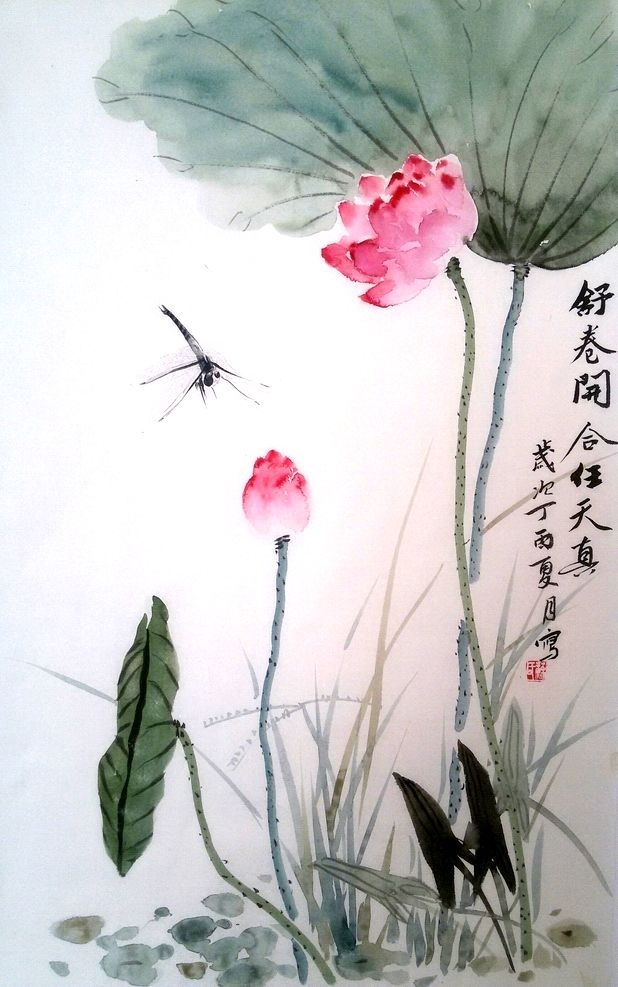 舒卷開合任天真
歲次丁酉夏月寫